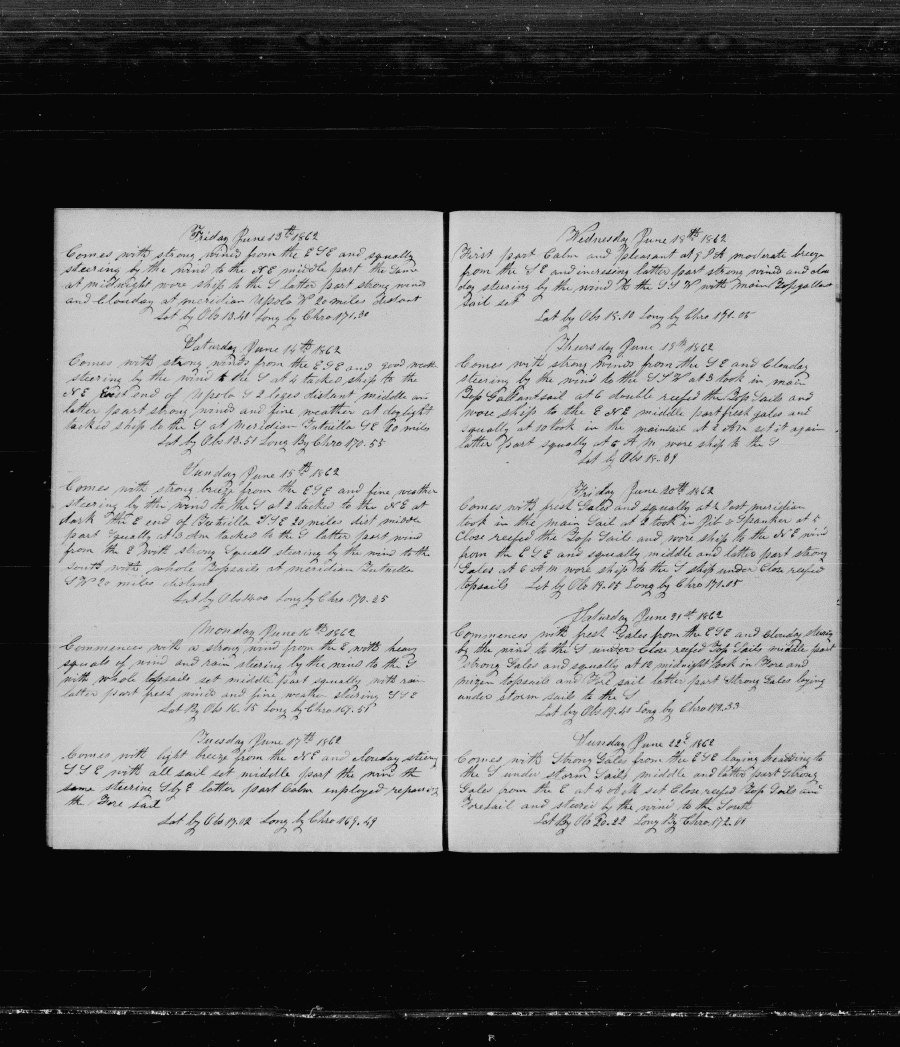 Friday June 13th 1862
Comes with strong wind from the E S E and squally
steering by the wind to the N E middle part the same
at midnight wore ship to the S latter part strong wind
and Clouday at meridian Upolo W 20 miles distant
Lat by Obs 13.41 Long by Chro 171.30
Saturday June 14th 1862
Comes with strong winds from the E S E and good weath
steering by the wind to the S at 4 tacked ship to the
N E East end of Upolo S 2 leges distant middle an
latter part strong winds and fine weather at daylight
tacked ship to the S at meridian Tutuilla S E 20 miles
Lat by Obs 13.51 Long By Chro 170.55
Sunday June 15th 1862
Comes with strong breeze from the E S E and fine weather
steering by the wind to the S at 2 tacked to the N E at
dark the E end of Tutuilla S S E 20 miles dist middle
part squally at 3 Am tacked to the S latter part wind
from the E with strong squalls steering by the wind to the
South with whole Topsails at meridian Tutuilla
S W 20 miles distant
Lat by Obs 14.00 Long by Chro 170.25
Monday June 16th 1862
Commences with a strong wind from the E with heavy
squals of wind and rain steering by the wind to the S
with whole topsails set middle part squally with rain
latter part fresh winds and fine weather steering S S E
Lat By Obs 16.15 Long by Chro 169.51
Tuesday June 17th 1862
Comes with light breeze from the N E and Clouday steering
S S E with all sail set middle part the wind the
same steering S by E latter part Calm employed repairing
the Fore sail
Lat by Obs 17.12 Long by Chro 169.49
Wednesday June 18th 1862
First part Calm and Pleasant at 9 P M moderate breeze
from the S E and incressing latter part strong wind and clou
day steering by the wind to the S S W with main Topgallant
Sail set
Lat by Obs 18.10 Long by Chro 171.05
Thursday June 19th 1862
Comes with strong winds from the S E and Clouday
steering by the wind to the S S W at 3 took in main
Top Gallantsail at 6 double reefed the Top Sails and
wore ship to the E N E middle part fresh gales and
squally at 10 took in the mainsail at 2 A m set it again
latter part squally at 5 A m wore ship to the S
Lat by Obs 18.39
Friday June 20th 1862
Comes with fresh Gales and squally at 1 Post meridian
took in the main Sail at 2 took in Jib & Spanker at 5
Close reefed the Top Sails and wore ship to the N E wind
from the E S E and squally middle and latter part strong
Gales at 6 A m wore ship to the S ship under Close reefed
topsails Lat by Obs 19.05 Long by Chro 171.05
Saturday June 21st 1862
Commences with fresh Gales from the E S E and Clouday steering
by the wind to the S under Close reefed Top Sails middle part
strong Gales and squally at 12 midnight took in Fore and
mizen topsails and Fore sail latter part Strong Gales laying
under storm sails to the S
Lat by Obs 19.41 Long by Chro 171.33
Sunday June 22d 1862
Comes with Strong Gales from the E S E laying heading to
the S under Storm Sails middle and latter part Strong
Gales from the E at 4 A M set Close reefed Top Sails and
Foresail and steered by the wind to the South
Lat By Obs 20.22 Long By Chro 172.01